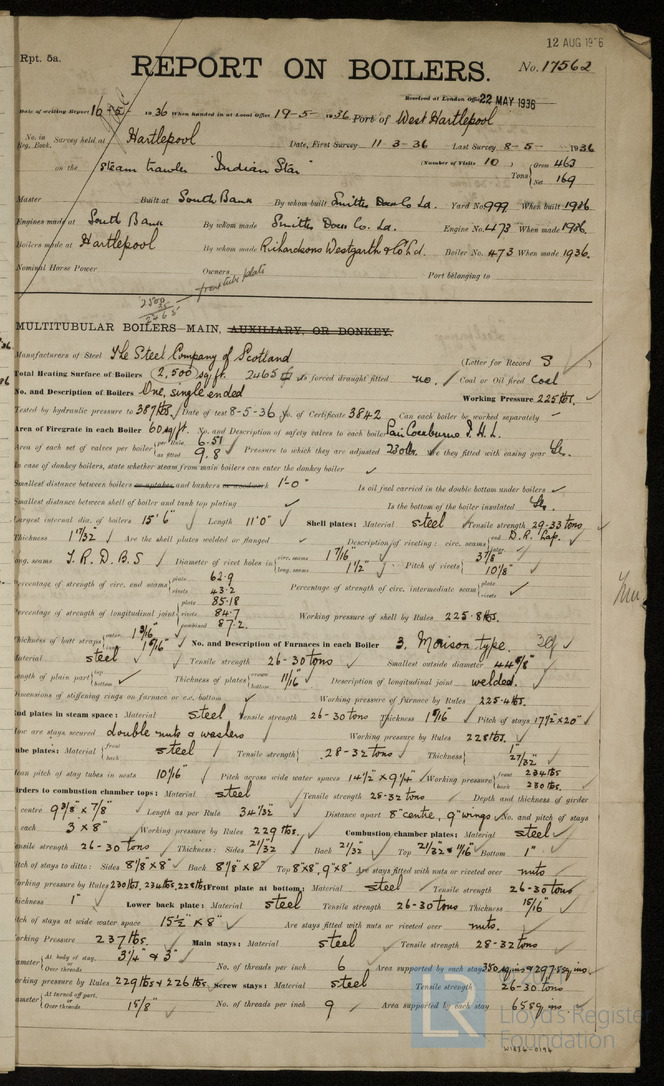 12 AUG 1936
Rpt. 5a.
REPORT ON BOILERS.
No. 17562
Received at London Office 22 MAY 1936
Date of writing Report 16-5- 1936 When handed in at Local Office 19-5-1936 Port of West Hartlepool
No. in Reg. Book. Survey held at Hartlepool Date, First Survey 11-3-36 Last Survey 8-5-1936
on the steam trawler "Indian Star" (Number of Visits 10) Tons Gross 463 Net 169
Master Built at South Bank By whom built Smiths Dock Co Ld. Yard No. 999 When built 1936
Engines made at South Bank By whom made Smiths Dock Co. Ld. Engine No. 473 When made 1936.
Boilers made at Hartlepool By whom made Richardsons Westgarth & Co Ld. Boiler No. 473 When made 1936.
Nominal Horse Power Owners Port belonging to
front tube plate
2500
35
2465
MULTITUBULAR BOILERS—MAIN, AUXILIARY, OR DONKEY.
Manufacturers of Steel The Steel Company of Scotland (Letter for Record S)
Total Heating Surface of Boilers 2,500 sq ft. 2465 Is forced draught fitted no. Coal or Oil fired Coal
No. and Description of Boilers One, single ended Working Pressure 225 lbs.
Tested by hydraulic pressure to 387 lbs. Date of test 8-5-36 No. of Certificate 3842 Can each boiler be worked separately
Area of Firegrate in each Boiler 60 sq ft. No. and Description of safety valves to each boiler Pair Cockburns I.H.L.
Area of each set of valves per boiler per Rule 6.51 as fitted 9.8 Pressure to which they are adjusted 230 lbs. Are they fitted with easing gear Yes.
In case of donkey boilers, state whether steam from main boilers can enter the donkey boiler
Smallest distance between boilers or uptakes and bunkers or woodwork 1'-0" Is oil fuel carried in the double bottom under boilers
Smallest distance between shell of boiler and tank top plating Is the bottom of the boiler insulated Yes
Largest internal dia. of boilers 15' 6" Length 11' 0" Shell plates: Material steel Tensile strength 29-33 tons
Thickness 1 17/32" Are the shell plates welded or flanged Description of riveting: circ. seams end D.R. Lap.
long. seams T.R.D.B.S Diameter of rivet holes in circ. seams 1 7/16" long. seams 1 1/2" Pitch of rivets 3 7/8" 10 1/8"
Percentage of strength of circ. end seams plate 62.9 rivets 43.2 Percentage of strength of circ. intermediate seam plate rivets
Percentage of strength of longitudinal joint plate 85.18 rivets 84.7 combined 87.2. Working pressure of shell by Rules 225.8 lbs.
Thickness of butt straps outer 1 3/16" inner 1 5/16" No. and Description of Furnaces in each Boiler 3, Morison type.
Material steel Tensile strength 26-30 tons Smallest outside diameter 44 5/8"
Length of plain part top bottom Thickness of plates crown bottom 11/16" Description of longitudinal joint welded.
Dimensions of stiffening rings on furnace or c.c. bottom Working pressure of furnace by Rules 225.4 lbs.
End plates in steam space: Material steel Tensile strength 26-30 tons Thickness 1 5/16" Pitch of stays 17 1/2" x 20"
How are stays secured double nuts & washers Working pressure by Rules 228 lbs.
Tube plates: Material front back steel Tensile strength 28-32 tons Thickness 1" 27/32"
Mean pitch of stay tubes in nests 10 1/16" Pitch across wide water spaces 14 1/2" x 9 1/4" Working pressure front 234 lbs back 230 lbs.
Girders to combustion chamber tops: Material steel Tensile strength 28-32 tons Depth and thickness of girder
centre 9 3/8" x 7/8" Length as per Rule 34 1/32" Distance apart 8" centre, 9" wings No. and pitch of stays
each 3 x 8" Working pressure by Rules 229 lbs. Combustion chamber plates: Material steel
Tensile strength 26-30 tons Thickness: Sides 21/32" Back 21/32" Top 21/32" & 11/16" Bottom 1"
Pitch of stays to ditto: Sides 8 1/8" x 8" Back 8 1/8" x 8" Top 8" x 8", 9" x 8" Are stays fitted with nuts or riveted over nuts
Working pressure by Rules 230 lbs, 234 lbs, 228 lbs Front plate at bottom: Material steel Tensile strength 26-30 tons
Thickness 1" Lower back plate: Material steel Tensile strength 26-30 tons Thickness 15/16"
Pitch of stays at wide water space 15 1/2" x 8" Are stays fitted with nuts or riveted over nuts.
Working Pressure 237 lbs. Main stays: Material steel Tensile strength 28-32 tons
Diameter At body of stay, or Over threads 3 1/4" & 3" No. of threads per inch 6 Area supported by each stay 350 sq ins & 297.5 sq ins
Working pressure by Rules 229 lbs & 226 lbs. Screw stays: Material steel Tensile strength 26-30 tons
Diameter At turned off part, or Over threads 1 5/8" No. of threads per inch 9 Area supported by each stay 65 sq ins
LR
Lloyd's Register
Foundation
W1836-0194